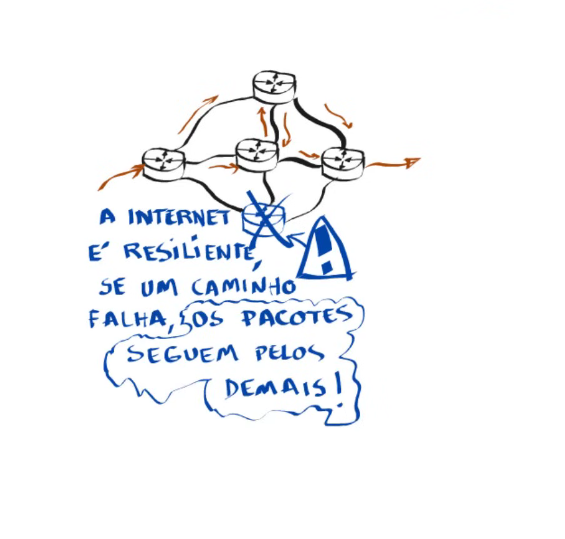 A INTERNET
É RESILIENTE,
SE UM CAMINHO
FALHA, OS PACOTES
SEGUEM PELOS
DEMAIS!
!